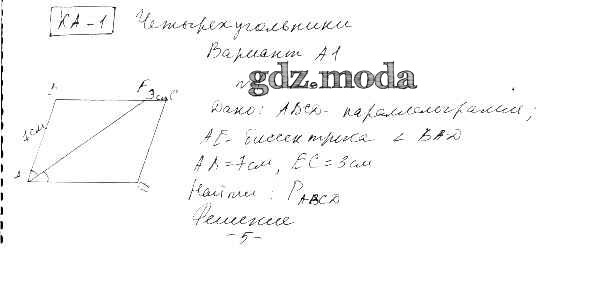 КА-1 Четырехугольники
Вариант А1
gdz.moda
Дано: ABCD - параллелограмм;
AE - биссектриса ∠ BAD
AB = 7см, EC = 3см
Найти: P ABCD
Решение
- 5 -
E 3см C
7см
A
D